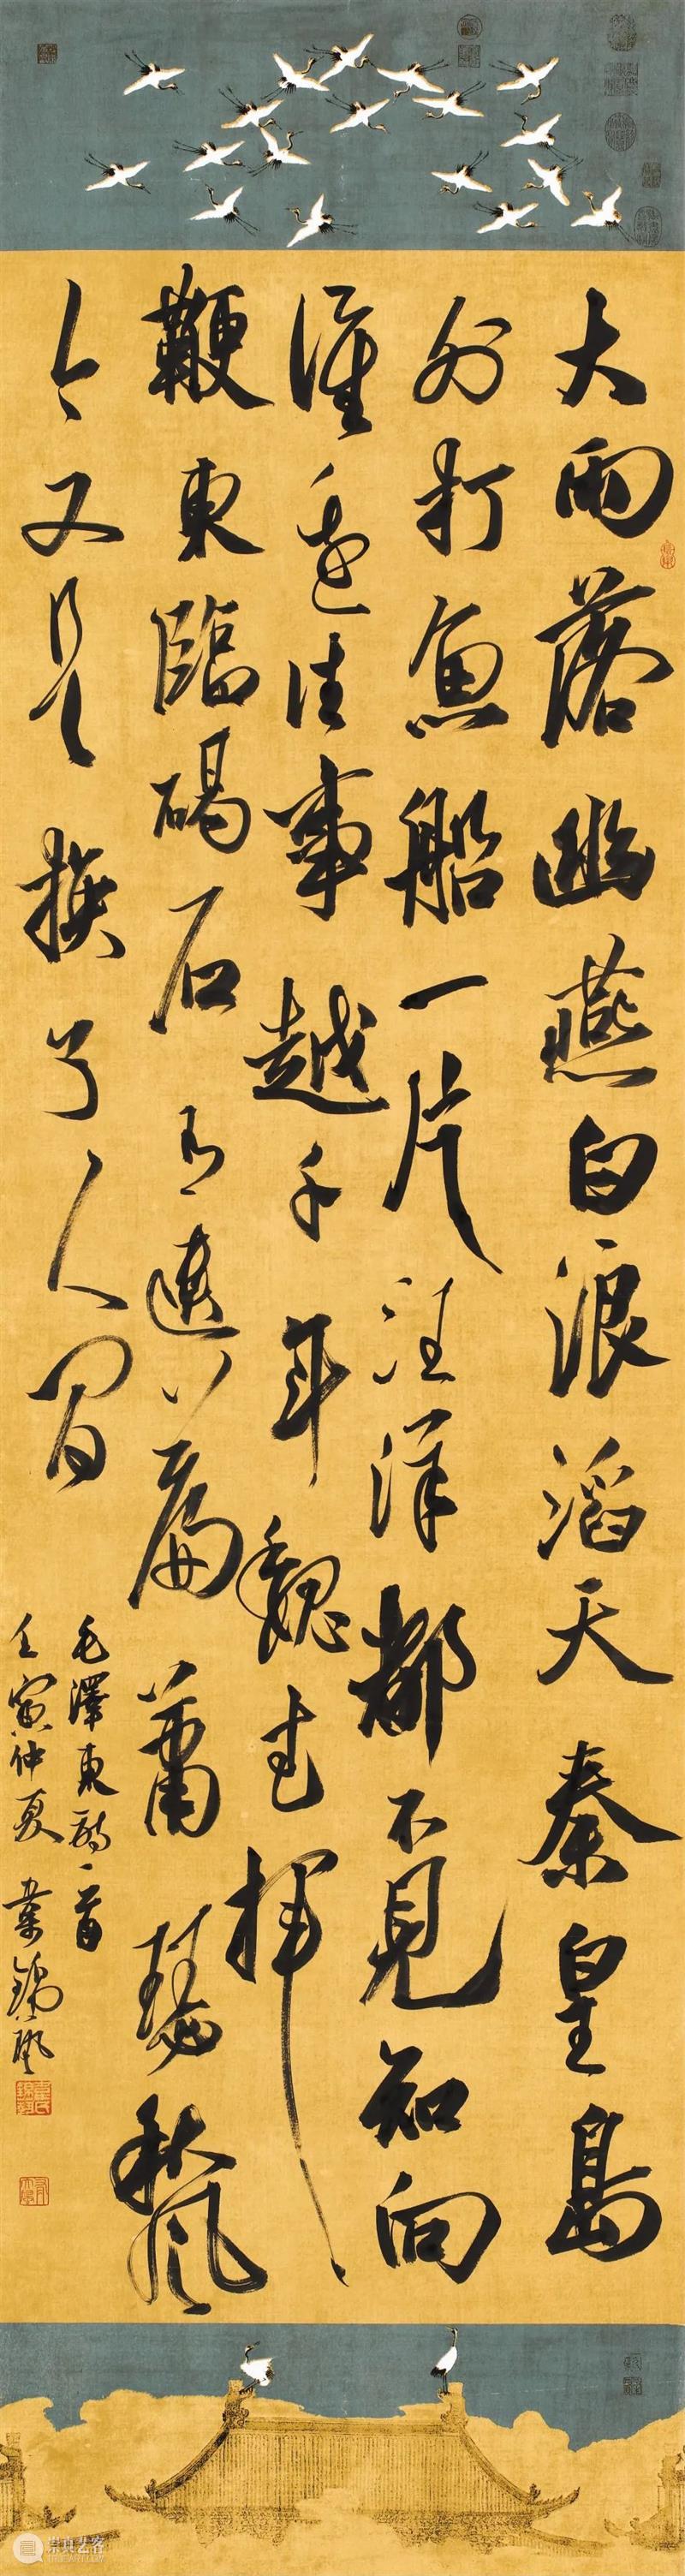 大雨落幽燕白浪滔天秦皇島
外打魚船一片汪洋都不見知向
誰邊往事越千年魏武揮
鞭東臨碣石有遺篇蕭瑟秋風
今又是換了人間
毛澤東詞一首
壬寅仲夏
崇真艺客